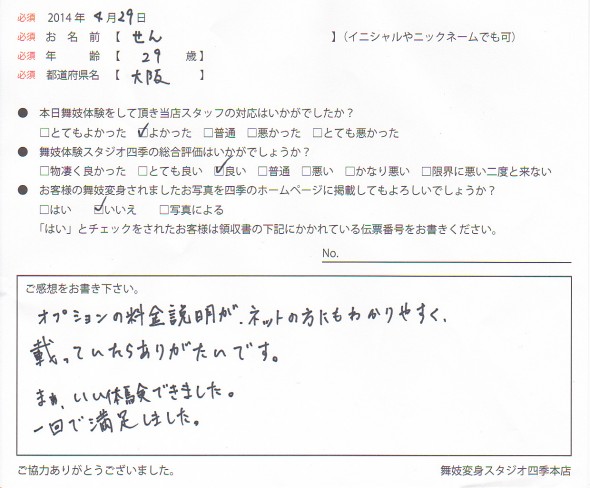 必須 2014年 4月29日
必須 お 名 前 【 せん 】(イニシャルやニックネームでも可)
必須 年 齢 【 29 歳】
必須 都道府県名【 大阪 】
● 本日舞妓体験をして頂き当店スタッフの対応はいかがでしたか？
□とてもよかった ☑よかった □普通 □悪かった □とても悪かった
● 舞妓体験スタジオ四季の総合評価はいかがでしょうか？
□物凄く良かった □とても良い ☑良い □普通 □悪い □かなり悪い □限界に悪い二度と来ない
● お客様の舞妓変身されましたお写真を四季のホームページに掲載してもよろしいでしょうか？
□はい ☑いいえ □写真による
「はい」とチェックをされたお客様は領収書の下記にかかれている伝票番号をお書きください。
No.
ご感想をお書き下さい。
オプションの料金説明が、ネットの方にもわかりやすく、
載っていたらありがたいです。
まぁ、いい体験できました。
一回で満足しました。
ご協力ありがとうございました。 舞妓変身スタジオ四季本店